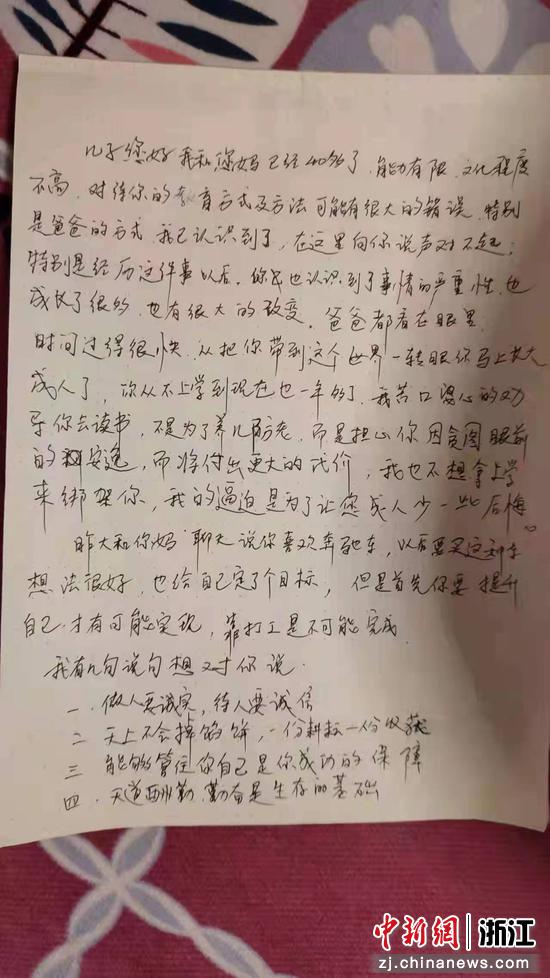 儿子您好 我和您妈已经40多了，能力有限，文化程度
不高，对待你的教育方式及方法可能有很大的错误，特别
是爸爸的方式，我已认识到了，在这里向你说声对不起；
特别是经历这件事以后，你也认识到了事情的严重性，也
成长了很多，也有很大的改变，爸爸都看在眼里，
时间过得很快，从把你带到这个世界一转眼你马上长大
成人了，你从不上学到现在也一年多了，我苦口婆心的劝
导你去读书，不是为了养儿防老，而是担心你因贪图眼前
的安逸，而将付出更大的代价，我也不想拿上学
来绑架你，我的逼迫是为了让您成人少一些后悔。
昨天和你妈聊天说你喜欢奔驰车，以后要买这部车
想法很好，也给自己定了个目标，但是首先你要提升
自己，才有可能实现，靠打工是不可能完成，
我有几句说句想对你说：
一、做人要诚实，待人要诚信
二、天上不会掉馅饼，一份耕耘一份收获
三、能够管住你自己是你成功的保障
四、天道酬勤，勤奋是生存的基础
中新网 浙江
zj.chinanews.com.cn